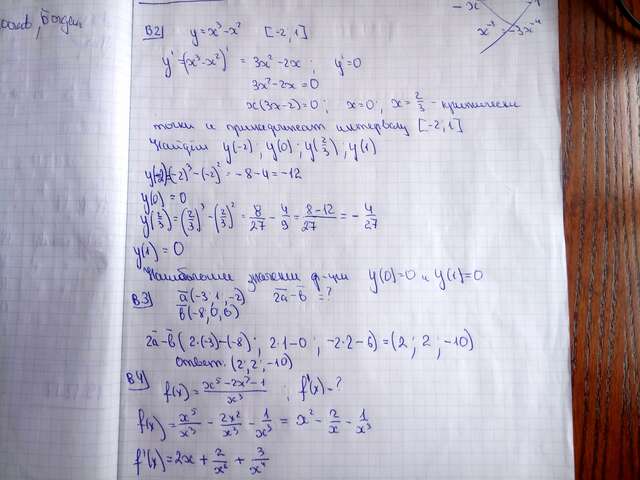 В2) y=x³-x² [-2;1]
y'=(x³-x²)'=3x²-2x; y'=0
3x²-2x=0
x(3x-2)=0; x=0; x=2/3 - критически
точки и принадлежат интервалу [-2;1]
Найдём y(-2); y(0); y(2/3); y(1)
y(-2)=(-2)³-(-2)²=-8-4=-12
y(0)=0
y(2/3)=(2/3)³-(2/3)²=8/27-4/9=8-12/27=-4/27
y(1)=0
Наибольшее ф-ции y(0)=0 и y(1)=0
В3) a(-3;1;-2) 2a-b=?
b(-8;0;6)
2a-b(2·(-3)-(-8); 2·1-0; -2·2-6)=(2; 2; -10)
ответ (2; 2; -10)
В4) f(x)=x⁵-2x²-1/x³; f'(x)=?
f(x)=x⁵/x³-2x²/x³-1/x³=x²-2/x-1/x³
f'(x)=2x+2/x²+3/x⁴
x⁻³
-3x⁻⁴